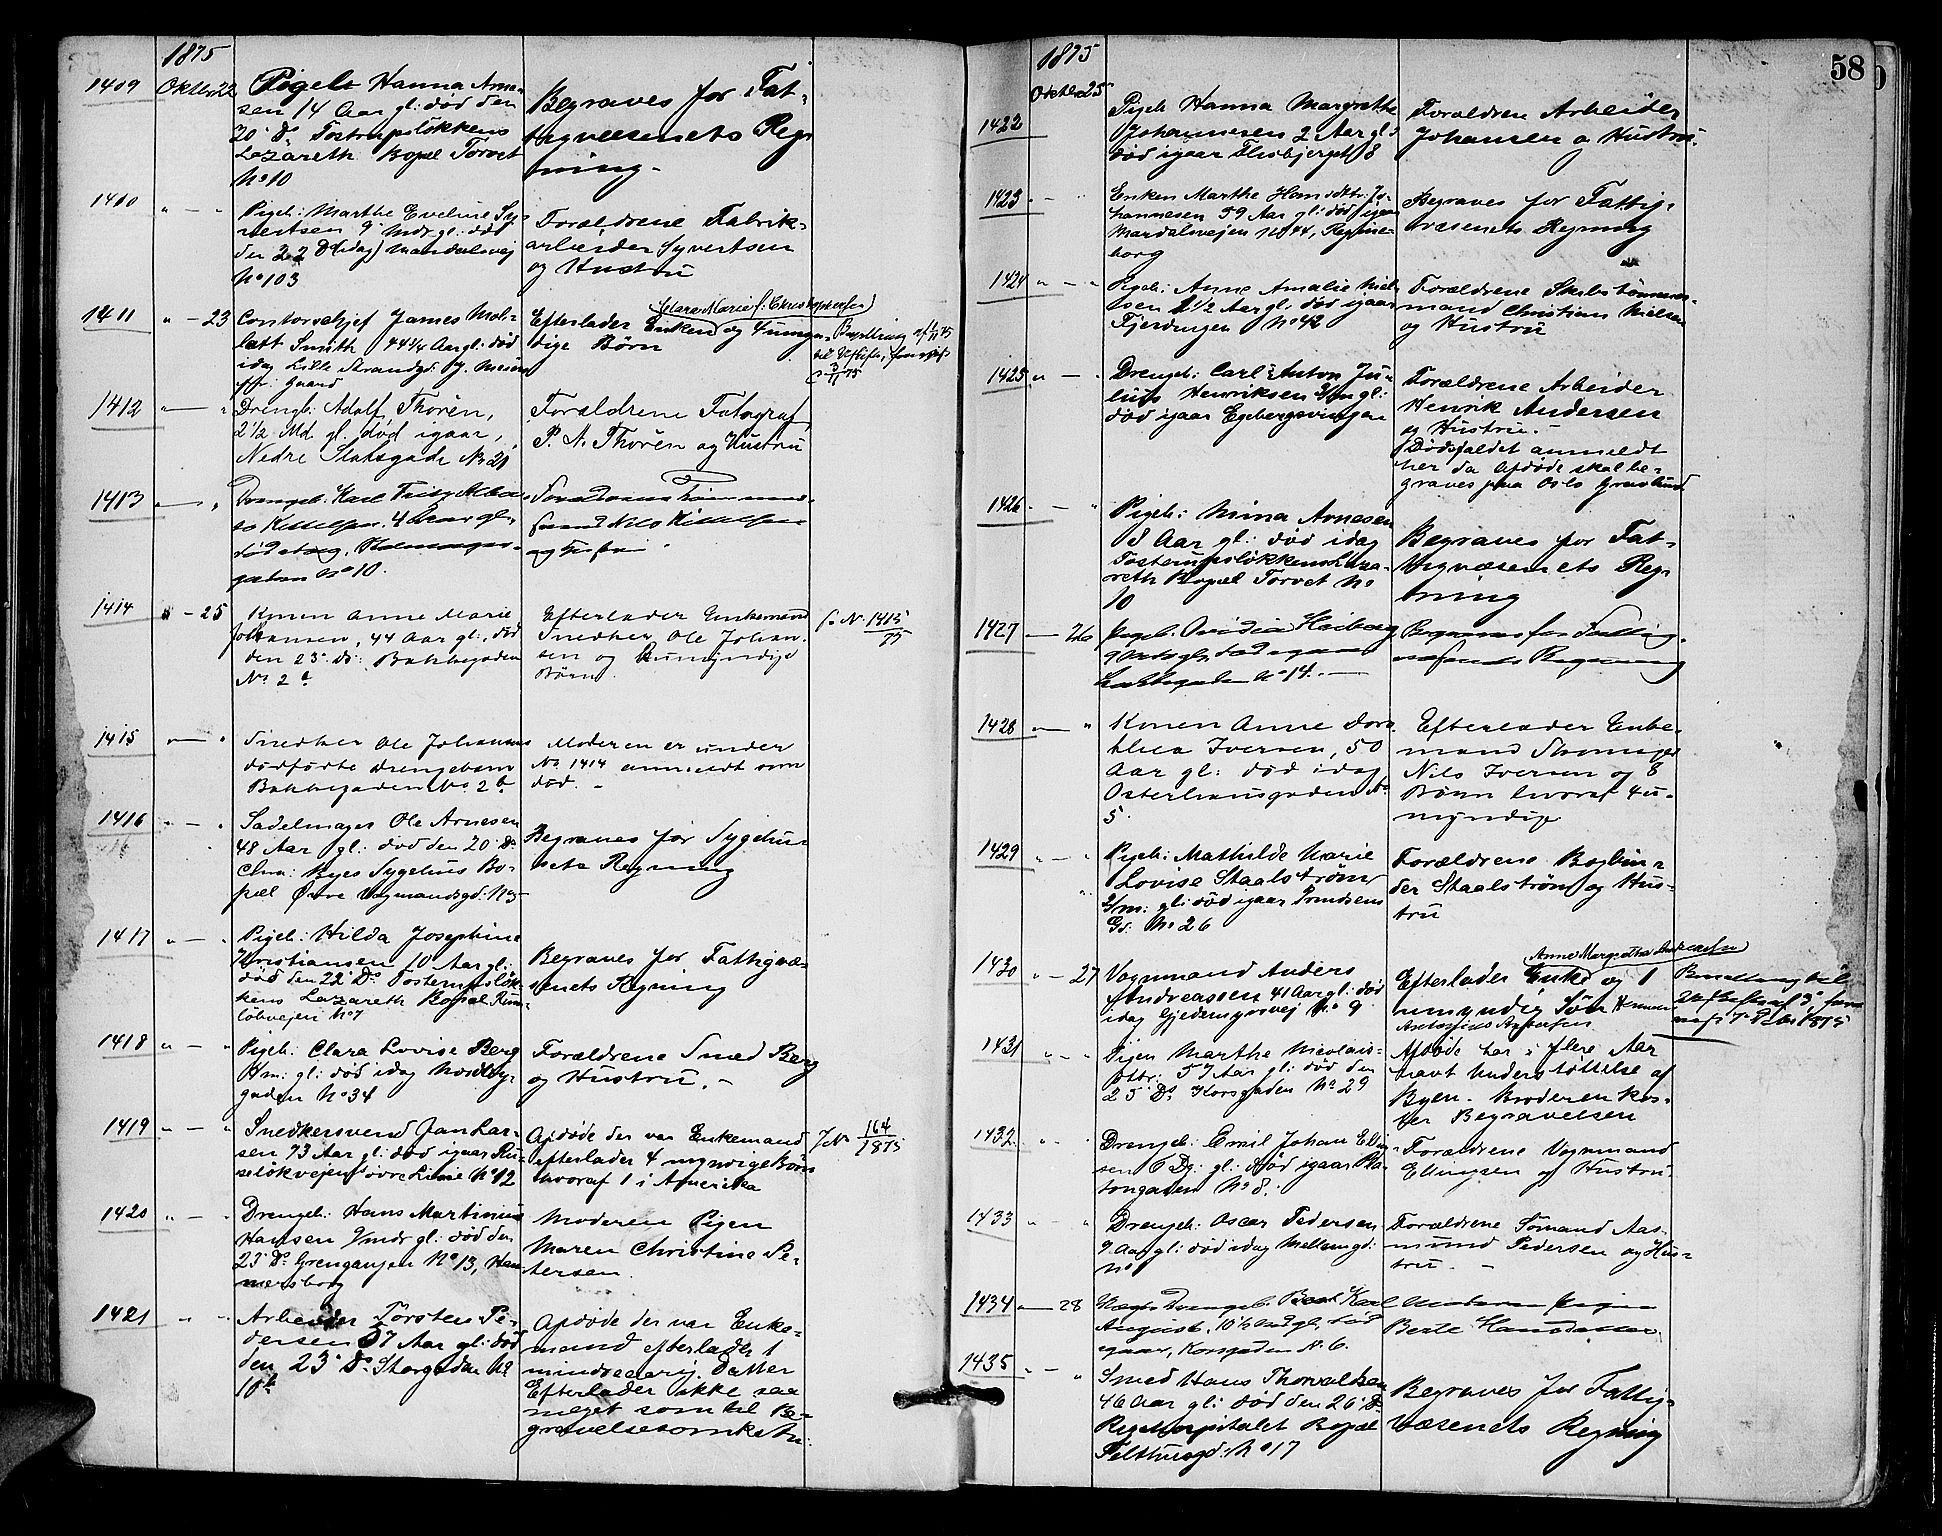 1875
1409 Oktbr 22 Pigeb: Hanna Arne-
sen 14 Aar gl: død den
20' Ds Tostrupsløkkens
Lazareth Bopel Torvet
No 10
Begraves for Fat-
tigvæsenets Reg-
ning -
1410 " - " Pigeb: Marthe Eveline Sy-
vertsen 9 Mdr gl: død
den 22 Ds (idag) Mandalsvej
No 103
Forældrene Fabrik-
arbeider Syvertsen
og Hustru
1411 " - 23 Contorschef James Mol-
lett Smith 44 1/4 Aar gl: død
idag Lille Strandgd:
Gaard
Clara Marie f: Christophersen
Efterlader Enken og 4 umyn-
dige Børn
1412 - " Drengb: Adolf Thorèn,
2 1/2 Md. gl. død igaar,
Nedre Slotsgade No 21
Forældrene Fotograf
P. A. Thorèn og Hustru
1413 - " Drengeb. Karl
Kittelsen, 4 Aar gl.
død idag,
gaden No 10.
Forældrene Tømmer-
mand Nils Kittelsen
og Hustru
1414 " - 25 Konen Anne Marie
Johansen, 44 Aar gl., død
den 23' Ds: Bakkegaden
No 2 b
Efterlader Enkemand
Snedker Ole Johan-
sen og umyndige
Børn.
No 1415/75
1415 - " Snedker Ole Johansens
dødfødte Drengebarn
Bakkegaden No 2 b
Moderen er under
No 1414 anmeldt som
død. -
1416 " - " Sadelmager Ole Arnesen
48 Aar gl: død den 20' Ds
Chra: Byes Sygehus Bo-
pæl Øvre Vognmandsgd: No 5
Begraves for Sygehu-
sets Regning
1417 " - " Pigeb: Hilda Josephine
Kristiansen 10 Aar gl:
død den 22' Ds Tostrupsløk-
kens Lazareth Bopæl
No 7
Begraves for Fattigvæ-
senets Regning
1418 " " Pigeb: Clara Lovise Berg
gl: død idag Nordby-
gaden No 34
Forældrene Smed Berg
og Hustru. -
1419 " - " Snedkersvend Jan Lar-
sen 73 Aar gl: død igaar Ru-
seløkvejens øvre Linie No 12
Afdøde der var Enkemand
efterlader 4 myndige Børn
hvoraf 1 i Amerika
J No 164/1875
1420 " - " Drengeb: Hans Martinus
Hansen gl: død den
23' Ds Grengangen No 13, Ham
mersborg
Moderen Pigen
Maren Christine Pe-
tersen.
1421 " " Arbeider Torsten Pe-
dersen 57 Aar gl: død
den 23' Ds Storgaden No
10 b
Afdøde der var Enke-
mand efterlader 1
mindreaarig Datter
Efterlader ikke saa
meget som til Be-
gravelsesomkostn:
58
1875
1422 Oktbr 25 Pigeb: Hanna Margrethe
Johannesen 2 Aar gl:
død igaar Flisbjerget 8
Forældrene Arbeider
Johansen o Hustru.
1423 " - " Enken Marthe Hansdtr: Jo-
hannesen 59 Aar gl: død igaar
Maridalsvejen No 44,
borg
Begraves for Fattig-
væsenets Regning
1424 " - " Pigeb: Anne Amalie Niel-
sen 1 1/2 Aar gl: død igaar
Fjerdingen No 42
Forældrene Skibstømmer-
mand Christian Nielsen
og Hustru
1425 " - " Drengeb: Carl Anton Ju-
lius Henriksen gl:
død igaar Egebergsvingen
Forældrene Arbeider
Henrik Andersen
og Hustru. -
Dødsfaldet anmeldt
her da Afdøde skal be-
graves paa Oslo Gravlund
1426 - " Pigeb: Mina Arnesen
8 Aar gl: død idag
Tostrupsløkkens Laza-
reth Bopæl Torvet No
10
Begraves for Fat-
tigvæsenets Reg-
ning
1427 - 26 Pigeb. Ovidia Heiberg
9 Mdr gl. død igaar
No 14. -
Begraves for Fattig-
væsenets Regning
1428 - " Konen Anne Doro
thea Iversen, 50
Aar gl: død idag
Osterhausgaden No
5.
Efterlader Enke-
mand
Nils Iversen og 8
Børn hvoraf 4 u-
myndige
1429 " - " Pigeb: Mathilde Marie
Lovise Staalstrøm
gl: død igaar
Gd: No 26
Forældrene Bogbin-
der Staalstrøm og Hus-
tru
1430 " - 27 Vognmand Anders
Andreassen 41 Aar gl: død
idag Gjedemyrsvej No 9
Anne Margrethe Andreasen
Efterlader Enke og 1
umyndig Søn
1431 " - " Pigen Marthe Nicolais-
dttr: 57 Aar gl: død den
25' Ds Korsgaden No 29
Afdøde har i flere Aar
havt Understøttelse af
Byen. Broderen kos-
ter Begravelsen
1432 " " Drengeb: Emil Johan Elling-
sen 6 Dg: gl: død igaar Pla-
tongaden No 8.
Forældrene Vognmand
Ellingsen og Hustru.
1433 " " Drengeb: Oscar Pedersen
9 Aar gl: død idag Mellemgd:
No
Forældrene Sømand Aas-
mund Pedersen og Hus-
tru. -
1434 - 28 Uægte Drengeb. Karl
August, 10 1/2 Md gl. død
igaar, Korsgaden No 6.
Moderen Pigen
Berte Hansdatter
1435 " - " Smed Hans Thorvaldsen
46 Aar gl: død den 26' Ds
Rigshospitalet Bopæl
Pilthusgd: No 17
Begraves for Fattig-
væsenets Regning